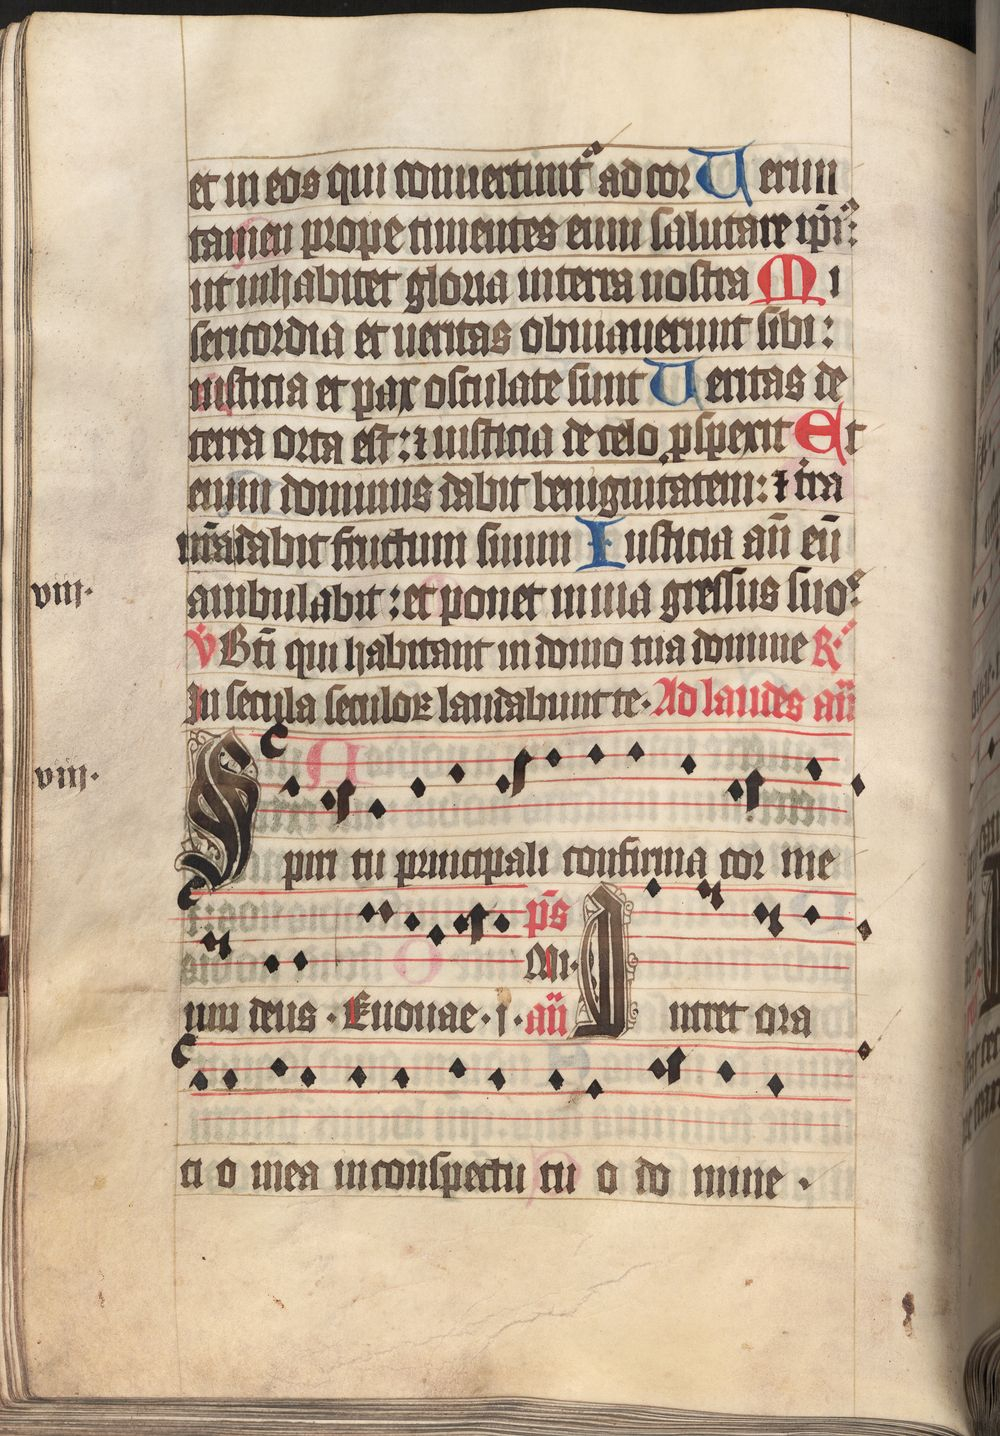 et in eos qui conuertunt᷑ ad cor Uerum
tamen prope timentes eum salutare ipi᷑:
ut inhabitet gloria in terra nostra Mi
sericordia et ueritas obuiauerunt sibi:
iusticia et pax osculate sunt Ueritas de
terra orta est: ⁊ iusticia de celo ꝓspexit Et
enim dominus dabit benignitatem: ⁊ t̄ra
nr̄a dabit fructum suum Iusticia aū eū
ambulabit: et ponet in uia gressus suo᷑
viii.
V̄ Bt̄i qui habitant in domo tua domine R.
In secula seculoꝝ laudabunt te. Ad laudes an̄
viii.
Spiri tu principali confirma cor me
p̄s
Mi.
um deus. Euouae. i. an̄ Intret ora
ci o mea in conspectu tu o do mine.